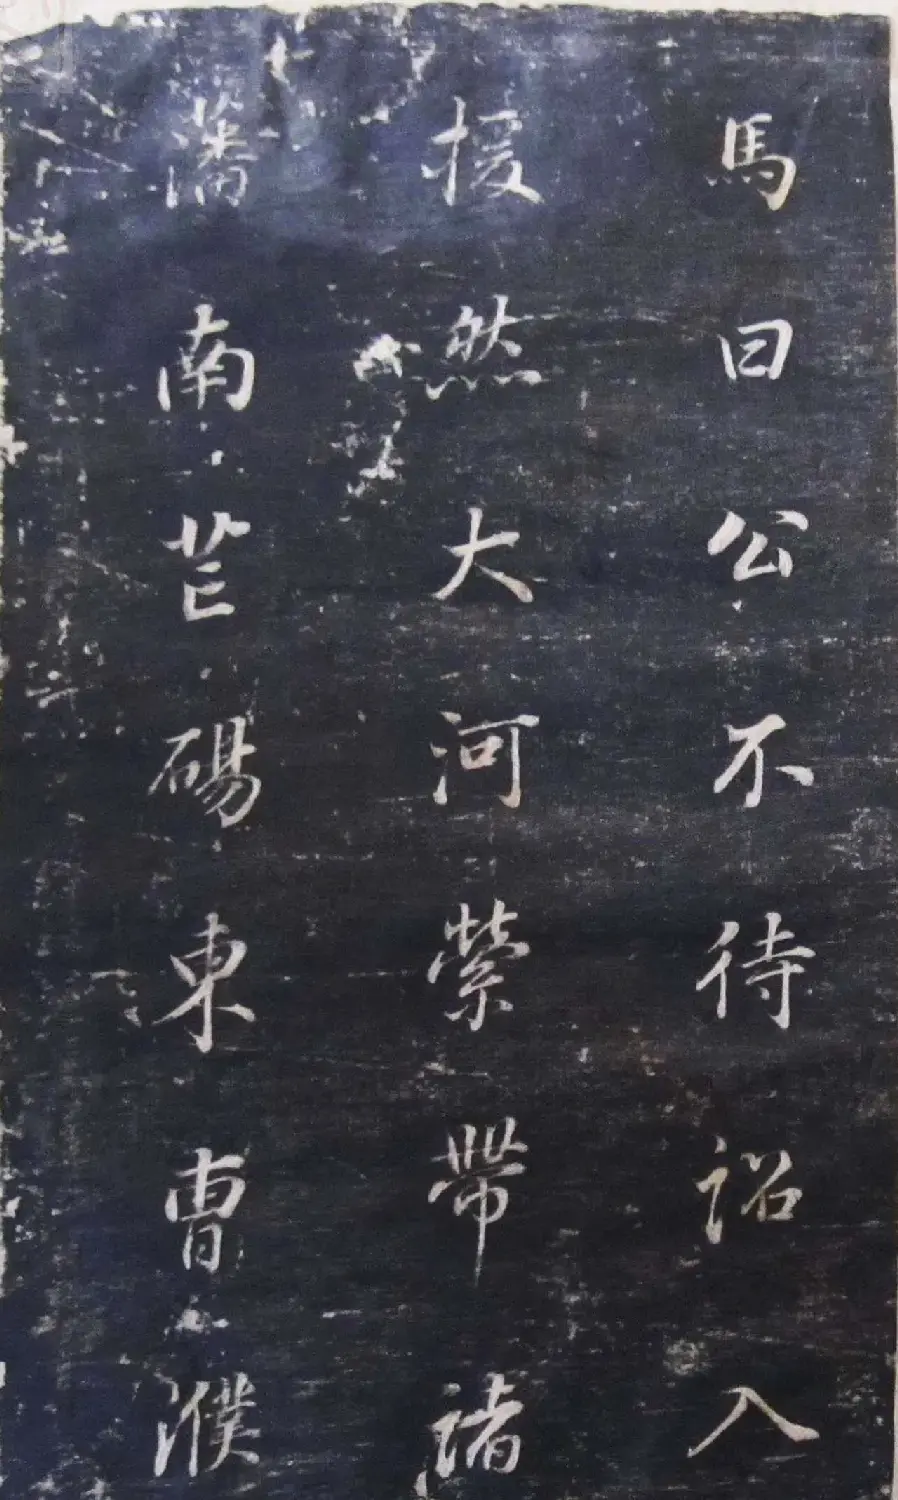 馬曰公不待詔入
援然大河縈帶諸
藩南芒碭東曹濮